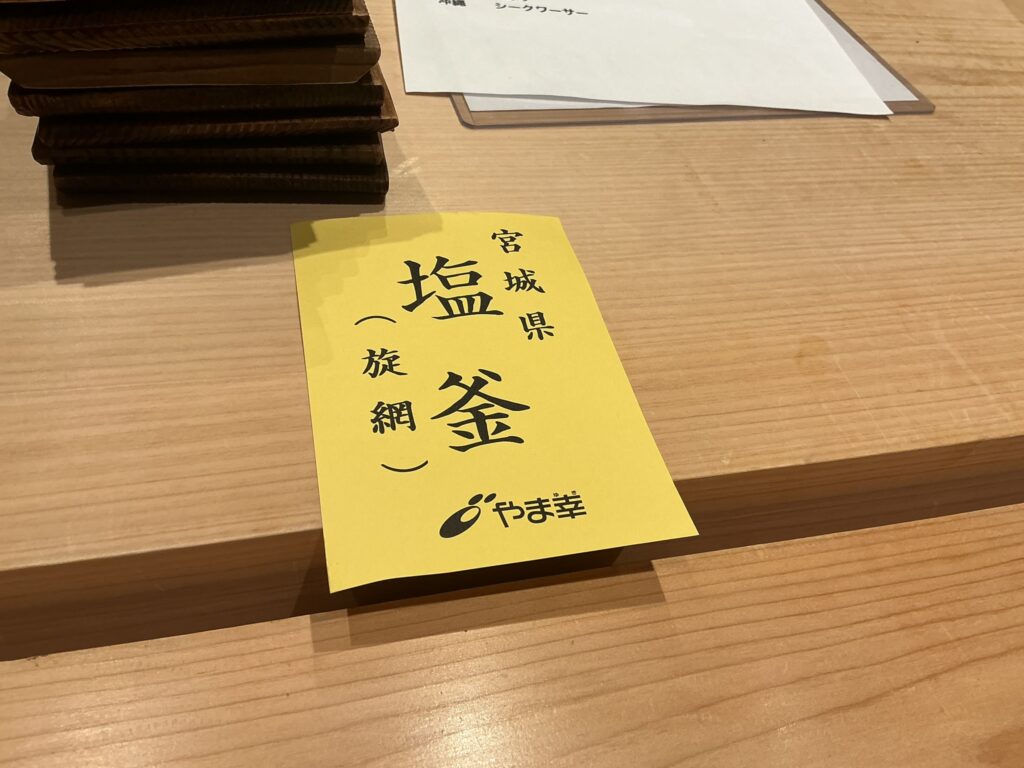 沖縄 シークワーサー
宮城県
塩釜
（旋網）
やま幸